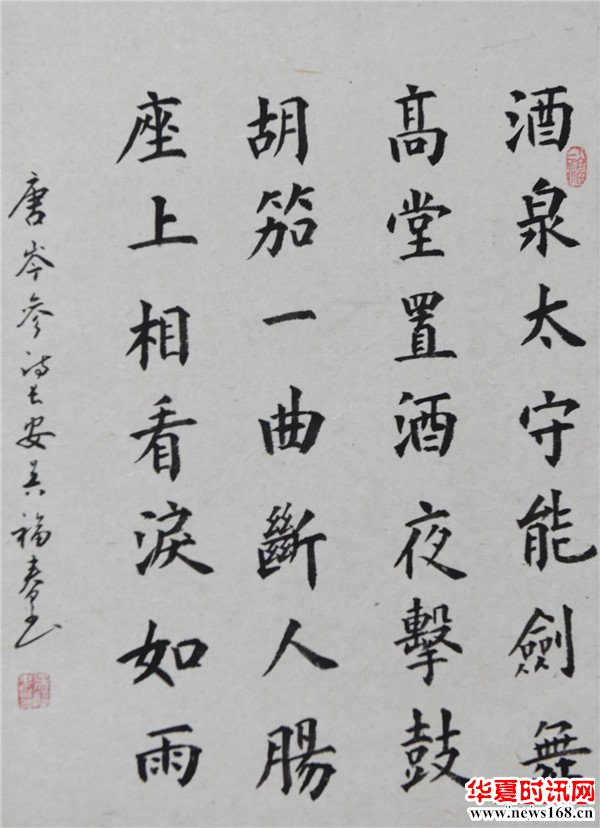 酒泉太守能劍舞
高堂置酒夜擊鼓
胡笳一曲斷人腸
座上相看淚如雨
唐岑参诗长安吴福春书
华夏时讯网
www.news168.cn